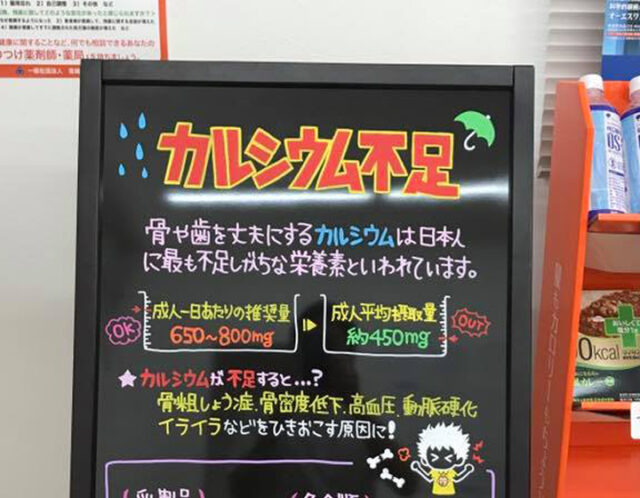 カルシウム不足
骨や歯を丈夫にするカルシウムは日本人
に最も不足しがちな栄養素といわれています。
成人一日あたりの推奨量
650～800mg
OK
成人平均摂取量
約450mg
OUT
★カルシウムが不足すると…?
骨粗しょう症、骨密度低下、高血圧、動脈硬化
イライラなどをひきおこす原因に!
乳製品
0kcal